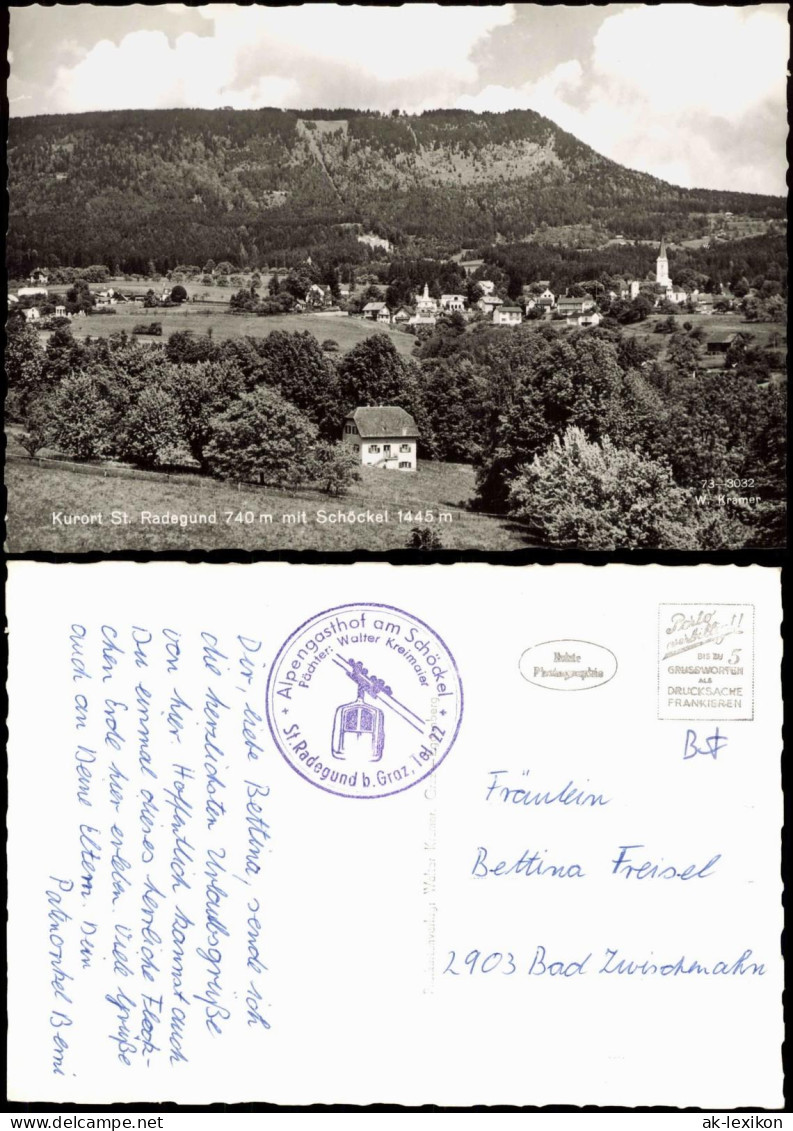 73-3032
W. Kramer
Kurort St. Radegund 740 m mit Schöckel 1445 m
Dir, liebe Bettina, sende ich
die herzlichsten Urlaubsgrüße
von hier. Hoffentlich kannst auch
Du einmal dieses herrliche Fleck-
chen Erde hier erleben. Viele Grüße
auch an Deine Eltern. Dein
Patenonkel Berni
Alpengasthof am Schöckel
Pächter: Walter Kreimaier
St. Radegund b. Graz, Tel. 22
Echte
Photographie
Porto
verbilligt!!
BIS ZU 5
GRUSSWORTEN
ALS
DRUCKSACHE
FRANKIEREN
Fräulein
Bettina Freisel
2903 Bad Zwischenahn
ak-lexikon